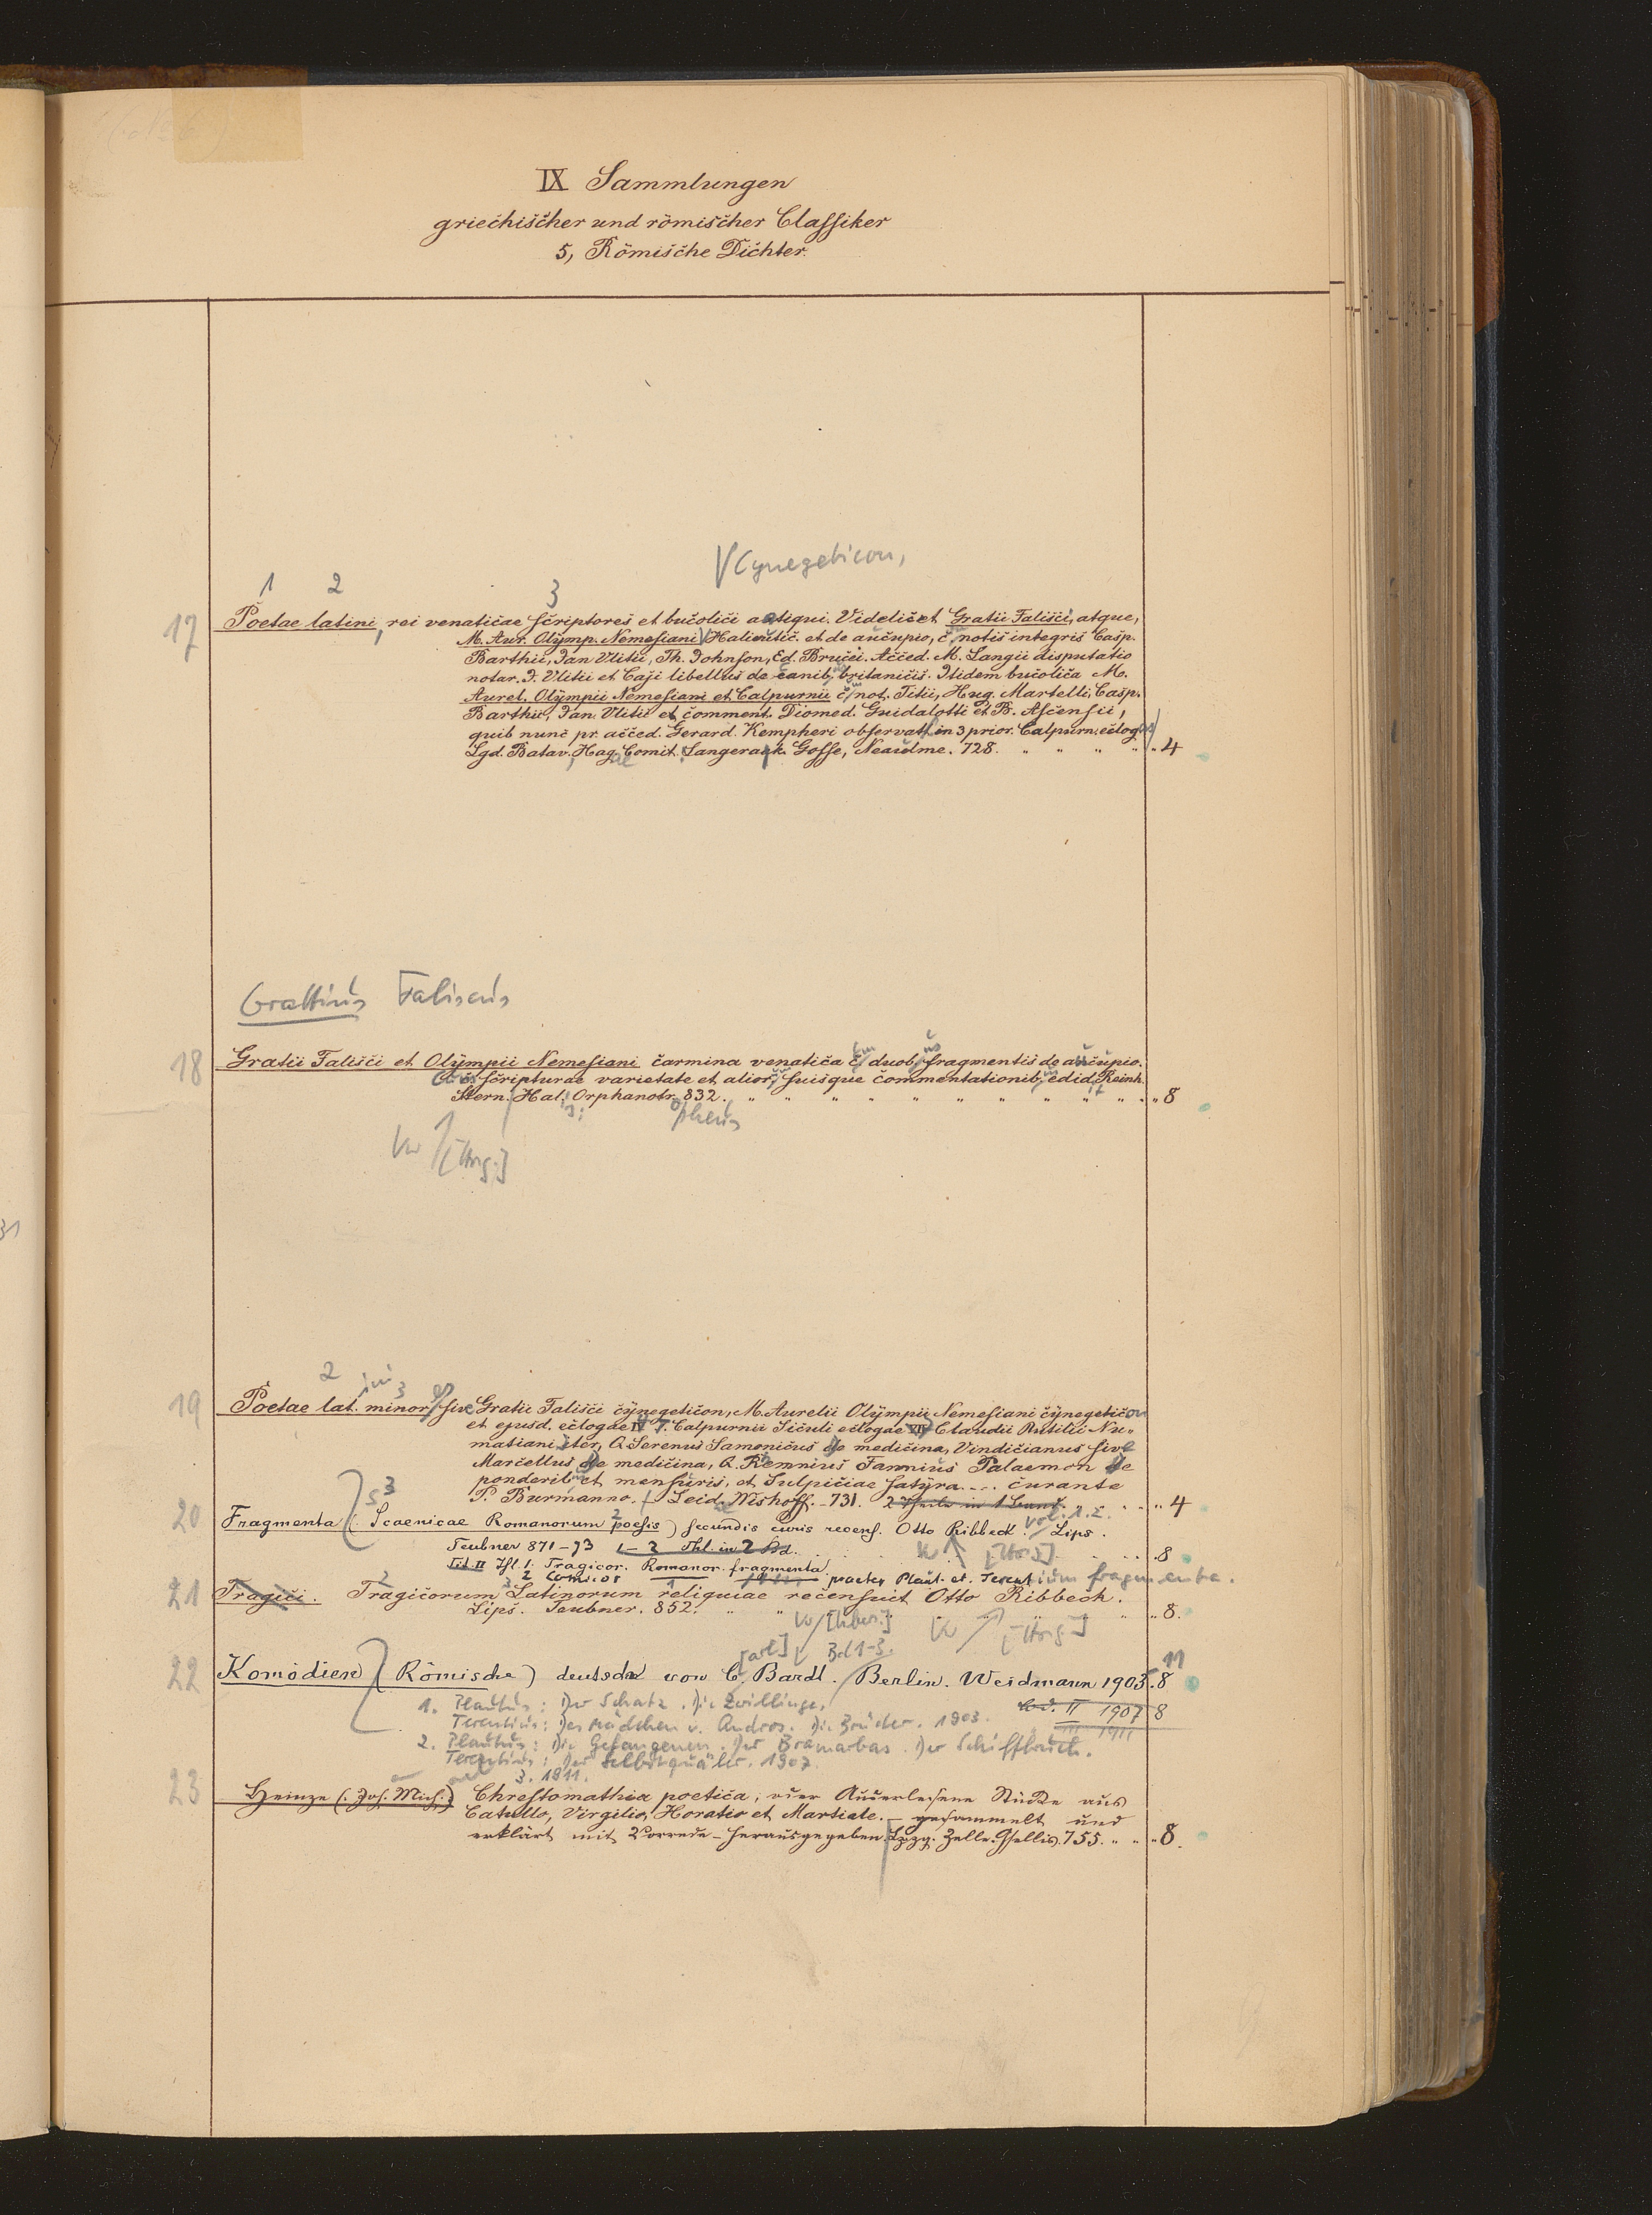 IX Sammlungen
griechischer und römischer Classiker
5, Römische Dichter.
Cynegeticon,
1 2 3
17 Poetae latini, rei venaticae scriptores et bucolici antiqui. Videlicet Gratii Falisci, atque,
M. Aur. Olymp. Nemesiani Halieutic. et de aucupio, c. notis integris Casp.
Barthii, Jan Vlitii, Th. Johnson, Ed. Brucei. Acced. M. Langii disputatio
notar. J. Vlitii et Caji libellus de canib. britanicis. Itidem bucolica M.
Aurel. Olympii Nemesiani et Calpurnii c. not. Titii, Hug. Martelli, Casp.
Barthii, Jan. Vlitii et comment. Diomed. Guidalotti et B. Ascensii,
quib nunc pr. acced. Gerard. Kempheri observatt. in 3 prior. Calpurn. eclogas
Lgd. Batav. Hag. Comit. Langerack. Gosse, Neaulme. 728. " " " " 4
Grattius Faliscus
18 Gratii Falisci et Olympii Nemesiani carmina venatica c. duob. fragmentis de aucupio.
scripturae varietate et alior. suisque commentationib. edid. Reinh.
Stern. Hal. Orphanotr. 832. " " " " " " " " " 8
opheus
19 Poetae lat. minor. sive Gratii Falisci cynegeticon, M. Aurelii Olympii Nemesiani cynegeticon
et ejusd. eclogae IV T. Calpurnii Siculi eclogae VII Claudii Rutilii Nu"
matiani iter, Q. Serenus Samonicus de medicina, Vindicianus sive
Marcellus de medicina, Q. Remnius Fannius Palaemon de
ponderib. et mensuris, et Sulpiciae satyra.... curante
P. Burmanno. Leid. Wishoff. 731. 2 Theile in 1 Band. " " " 4
20 Fragmenta (Scaenicae Romanorum poesis) secundis curis recens. Otto Ribbeck. vol. 1. 2. Lips.
Teubner 871-73 1-2 Thl. in 2 Bd. 8
1. Tragicor. Romanor. fragmenta
2 Comicor praeter Plaut. et. Terentium fragmenta.
21 Tragici. Tragicorum Latinorum reliquiae recensuit Otto Ribbeck.
Lips. Teubner. 852. " " 8.
Bd 1-3.
22 Komödien (Römische) deutsch von C. Bardt. Berlin. Weidmann 1903. 8
1. Plautus: Der Schatz. Die Zwillinge, Bd. II 1907 8
Terentius: Das Mädchen v. Andros. Die Brüder. 1903. III 1911
2. Plautus: Die Gefangenen. Der Bramarbas. Der Schiffbruch.
Terentius: Der Selbstquäler. 1907.
3. 1911.
23 Heinze (Joh. Mich.) Chrestomathia poetica, oder Auserlesene Stücke aus
Catullo, Virgilio, Horatio et Martiale. – gesammelt und
erklärt mit Vorrede – herausgegeben. Lpzg. Zelle. Gsellis. 755. " " 8.